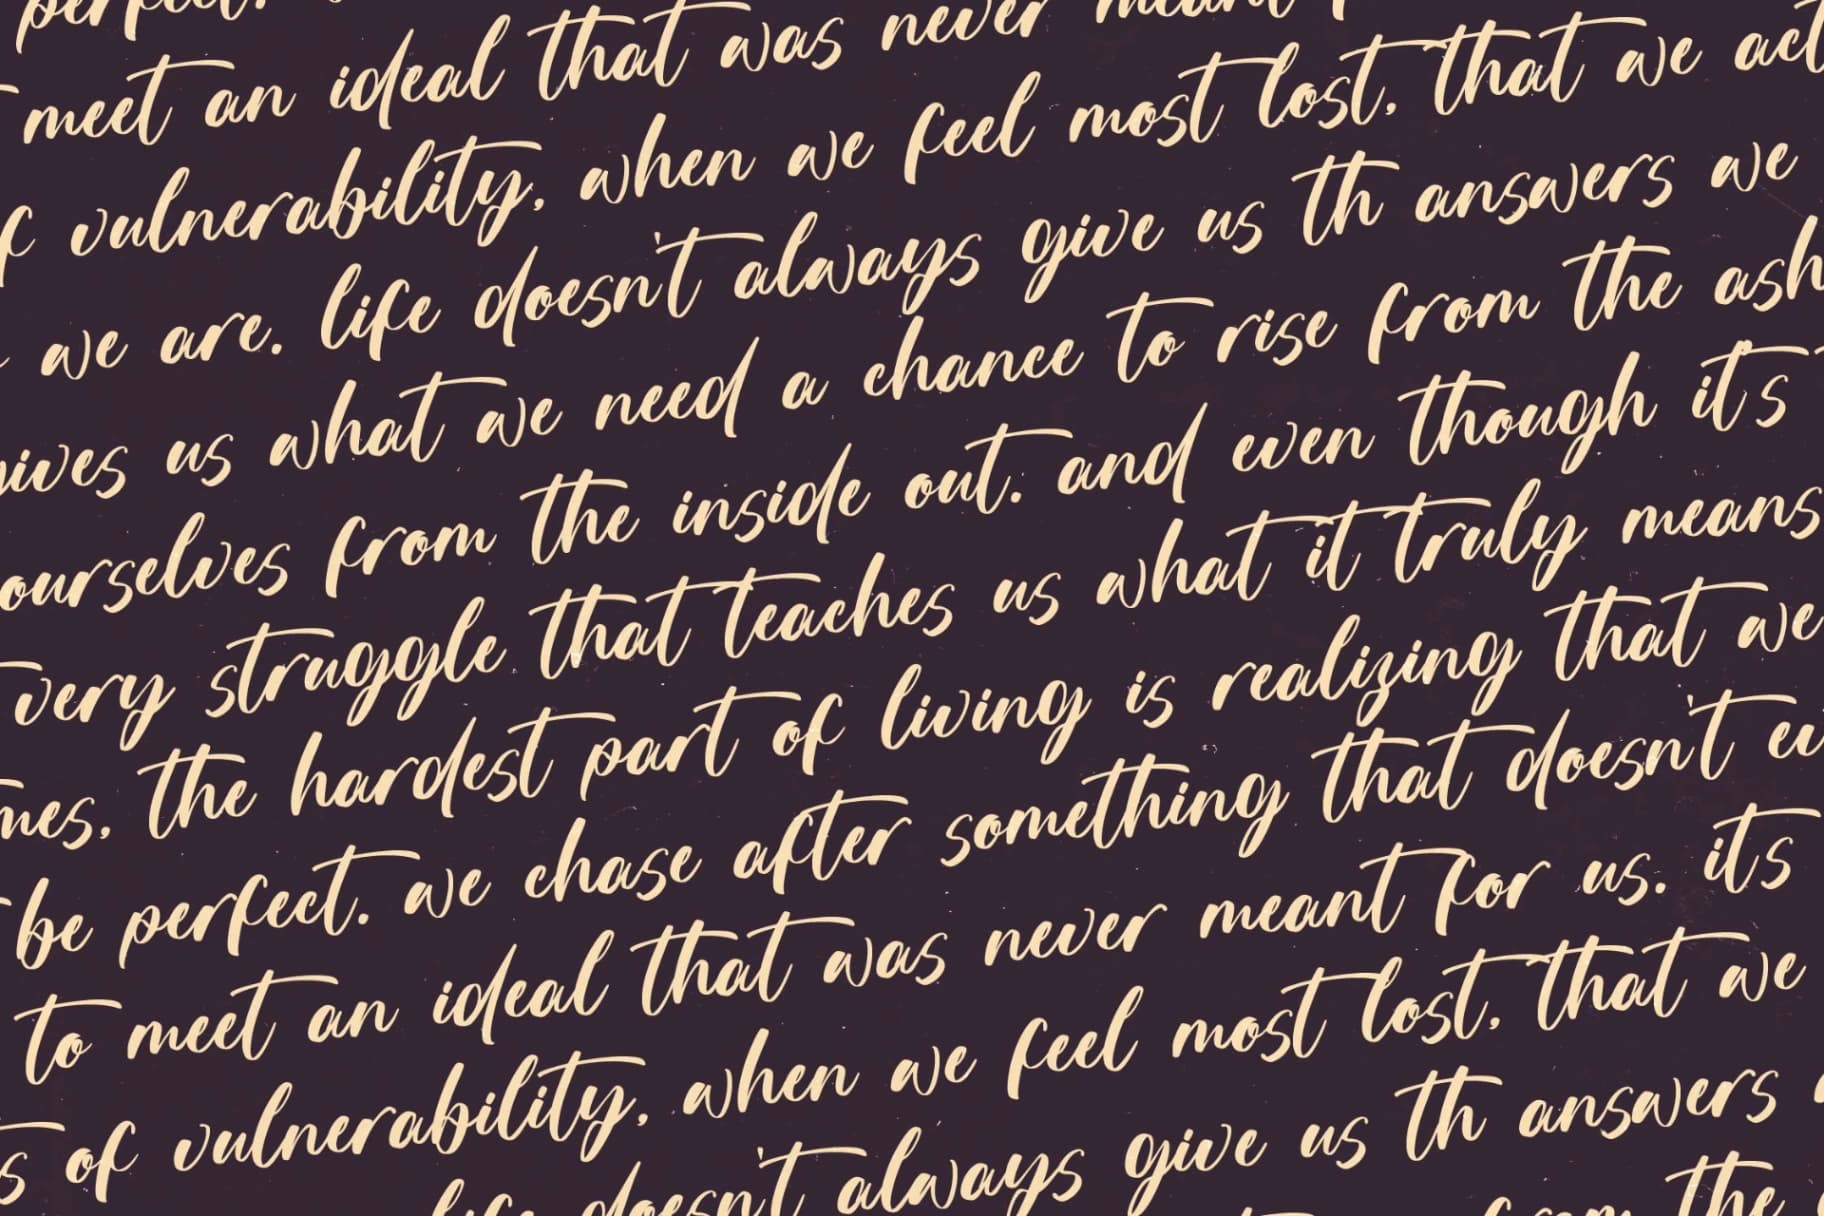 perfect.
meet an ideal that was never meant
of vulnerability, when we feel most lost, that we act
we are. life doesn't always give us th answers we
gives us what we need a chance to rise from the ash
ourselves from the inside out. and even though it's
very struggle that teaches us what it truly means
mes, the hardest part of living is realizing that we
be perfect. we chase after something that doesn't ev
to meet an ideal that was never meant for us. it's
s of vulnerability, when we feel most lost, that we
life doesn't always give us th answers
from the